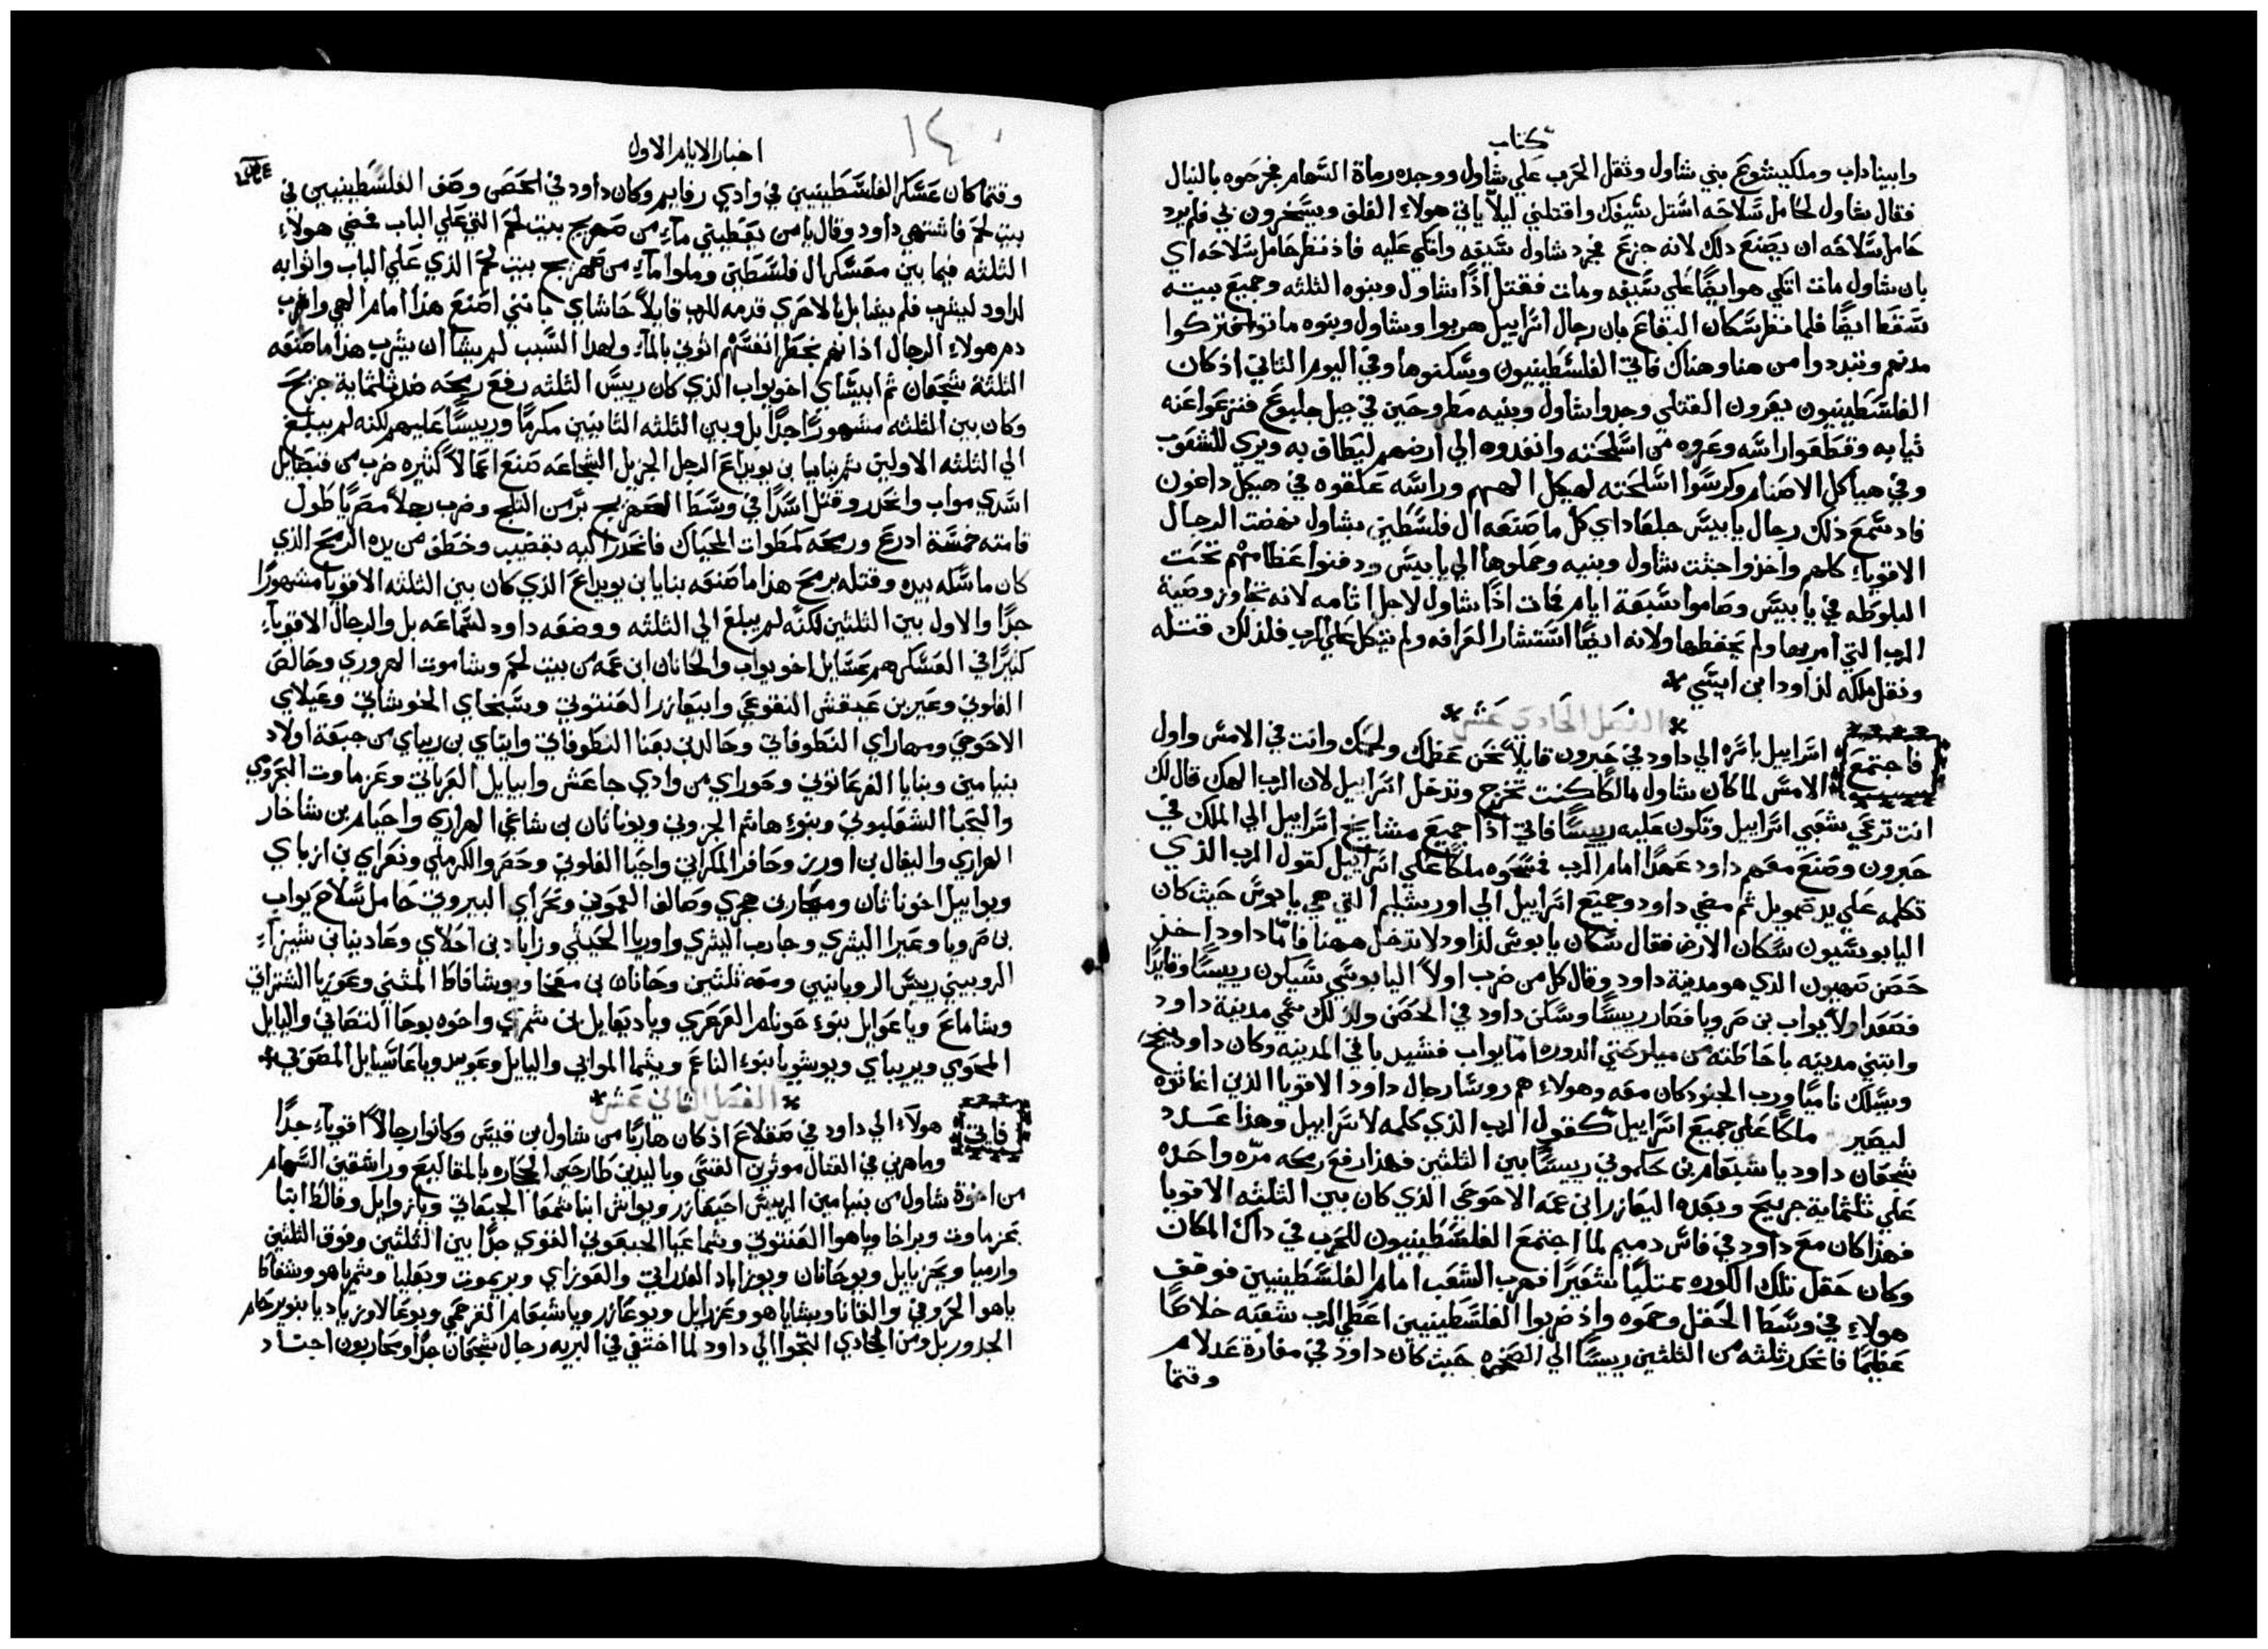 كتاب
وابيناداب وملكيشوع بني شاول وثقل الحرب علي شاول ووجده رماة السهام فجرحوه بالنبال
فقال شاول لحامل سلاحه استل سيفك واقتلني ليلا ياتي هولاء الغلف ويسخرون بي فلم يرد
حامل سلاحه ان يصنع ذلك لانه جزع فجرد شاول سيفه واتكي عليه فاذ نظر حامل سلاحه اي
بان شاول مات اتكي هو ايضا علي سيفه ومات فقتل اذا شاول وبنوه الثلثه وجميع بيته
سقط ايضا فلما نظر سكان البقاع بان رجال اسراييل هربوا وشاول وبنوه ماتوا تركوا
مدنهم وتبددوا من هنا وهناك فاتي الفلسطينيون وسكنوها وفي اليوم الثاني اذ كان
الفلسطينيون يعرون القتلي وجدوا شاول وبنيه مطروحين في جبل جلبوع فنزعوا عنه
ثيابه وقطعوا راسه وعروه من اسلحته وانفدوه الي ارضهم ليطاف به ويري للشعوب
وفي هياكل الاصنام وكرسوا اسلحته لهيكل الههم وراسه علقوه في هيكل داغون
فاد سمع ذلك رجال يابيس جلعاد اي كل ما صنعه ال فلسطين بشاول نهضت الرجال
الاقوياء كلهم واخذوا جثت شاول وبنيه وحملوها الي يابيس ودفنوا عظامهم تحت
البلوطه في يابيس وصاموا سبعة ايام فمات اذا شاول لاجل اثامه لانه تجاوز وصية
الرب التي امر بها ولم يحفظها ولانه ايضا استشار العرافه ولم يتكل علي الرب فلذلك قتله
ونقل ملكه لداود ابن ايسي *
* الفصل الحادي عشر *
فاجتمع اسراييل باسره الي داود في حبرون قايلا نحن عظمك ولحمك وانت في الامس واول
الامس لما كان شاول مالكا كنت تخرج وتدخل اسراييل لان الرب الهك قال لك
انت ترعي شعبي اسراييل وتكون عليه رييسا فاتي اذا جميع مشايخ اسراييل الي الملك في
حبرون وصنع معهم داود عهدا امام الرب فمسحوه ملكا علي اسراييل كقول الرب الذي
تكلمه علي يد صمويل ثم مضي داود وجميع اسراييل الي اورشليم التي هي يابوس حيث كان
اليابوسيون سكان الارض فقال سكان يابوس لداود لا تدخل ههنا فاما داود اخذ
حصن صهيون الذي هو مدينة داود وقال كل من ضرب اولا اليابوسي سيكون رييسا وقايدا
فصعد اولا يواب بن صرويا فصار رييسا وسكن داود في الحصن ولذلك سمي مدينة داود
وابتني مدينه باحاطته من ميلو حتي الدوره اما يواب فشيد باقي المدينه وكان داود ينجح
ويسلك ناميا ورب الجنود كان معه وهولاء هم روسا رجال داود الاقويا الذين اغاثوه
ليصير ملكا علي جميع اسراييل كقول الرب الذي كلمه لاسراييل وهذا عدد
شجعان داود ياشبعام بن حكموني رييسا بين الثلثين فهذا رفع رمحه مره واحده
علي ثلثماية جريح وبعده اليعازر ابن عمه الاحوحي الذي كان بين الثلثه الاقويا
فهذا كان مع داود في فاس دميم لما اجتمع الفلسطينيون للحرب في داك المكان
وكان حقل تلك الكوره ممتليا شعيرا فهرب الشعب امام الفلسطينيين فوقف
هولاء في وسط الحقل وحموه واذ ضربوا الفلسطينيين اعطي الرب شعبه خلاصا
عظيما فانحدر ثلثه من الثلثين رييسا الي الصخره حيث كان داود في مغارة عدلام
وقتما
اخبار الايام الاول
١٤٠
وقتما كان عسكر الفلسطينيين في وادي رفايم وكان داود في الحصن وصف الفلسطينيين في
بيت لحم فاشتهي داود وقال يا من يعطيني ماء من صهريج بيت لحم التي علي الباب فمضي هولاء
الثلثه فيما بين معسكر ال فلسطين وملوا ماء من صهريج بيت لحم الذي علي الباب واتوا به
لداود ليشرب فلم يشا بل بالاحري قدمه للرب قايلا حاشاي يا بني اصنع هذا امام الهي واشرب
دم هولاء الرجال اذ انهم بخطر انفسهم اتوني بالماء ولهدا السبب لم يشا ان يشرب هذا ما صنعه
الثلثة شجعان ثم ابيساي اخو يواب الذي كان رييس الثلثه رفع رمحه ضد ثلثماية جريح
وكان بين الثلثه مشهورا جدا بل وبين الثلثه الثانيين مكرما ورييسا عليهم لكنه لم يبلغ
الي الثلثه الاولين ثم بنايا بن يويداع الرجل الجزيل الشجاعه صنع اعمالا كثيره ضرب من قبصاييل
اسدي مواب وانحدر وقتل اسدا في وسط الصهريج من الثلج وضرب رجلا مصريا طول
قامته خمسة ادرع ورمحه كمطوات الحياك فانحدر اليه بقضيب وخطف من يده الرمح الذي
كان ماسكه بيده وقتله برمح هذا ما صنعه بنايا بن يويداع الذي كان بين الثلثه الاقويا مشهورا
جدا والاول بين الثلثين لكنه لم يبلغ الي الثلثه ووضعه داود لسماعه بل والرجال الاقوياء
كثيرا في العسكر هم عسايل اخو يواب والحانان ابن عمه من بيت لحم وشاموت الهروري وحالص
الفلوني وعير بن عيقش التقوعي وابيعازر العنتوتي وسبخاي الحوشاتي وعيلاي
الاحوحي ومهاراي النطوفاتي وحالد بن بعنا النطوفاتي وايتاي بن ريباي من جبعة اولاد
بنيامين وبنايا الفرعاتوني وحوراي من وادي جاعش وابيايل العرباتي وعزماوت البحرومي
واليحبا الشعلبوني وبنوء هاشم الجزوني ويوناثان بن شاعي الهراري واحيام بن شاخار
الهراري واليفال بن اور وحافر المكراتي واحيا الفلوني وحصر والكرملي ونعراي بن ازباي
ويواييل اخو ناثان ومبحار بن هجري وصالف العموني ونحراي البيروتي حامل سلاح يواب
بن صرويا وعيرا اليثري وجارب اليثري واوريا الحيثي وزاباد بن احلاي وعادينا بن شيزاء
الروبيني رييس الروبانيين ومعه ثلثين وحانان بن معخا ويوشافاط المثني وعوزيا الشتراتي
وشاماع وياعوايل بنوء حوتام العرعري وياديعايل بن شمري واخوه يوحا التتصاني واليايل
المحوي ويريباي ويوشويا بنوء الناعم ويثما الموابي واليايل وعوبيد وياعاسيايل المصوبي *
* الفصل الثاني عشر *
فاتي هولاء الي داود في صقلاع اذ كان هاربا من شاول بن قيس وكانوا رجالا اقوياء جدا
وماهرين في القتال موثرين القسي وباليدين طارحين الحجاره بالمقاليع وراشقين السهام
من اخوة شاول من بنيامين الرييس احيعازر ويواش ابنا شمعا الجبعاتي ويازوايل وفالط ابنا
عزماوت وبراخا وياهو العنتوتي وشماعيا الجبعوني القوي جدا بين الثلثين وفوق الثلثين
وارميا ويحزيايل ويوحانان ويوزاباد الغدراتي والعوزاي ويريموت وبعليا وشمرياهو وشفاطا
ياهو الحروفي والقانا ويشاياهو وعزرايل ويوعازر وياشبعام القرحمي ويوعالا وزباديا بنو يرحام
الجدور بل ومن الجادي التجوا الي داود لما اختفي في البريه رجال شجعان جدا ومحاربون اجتاد